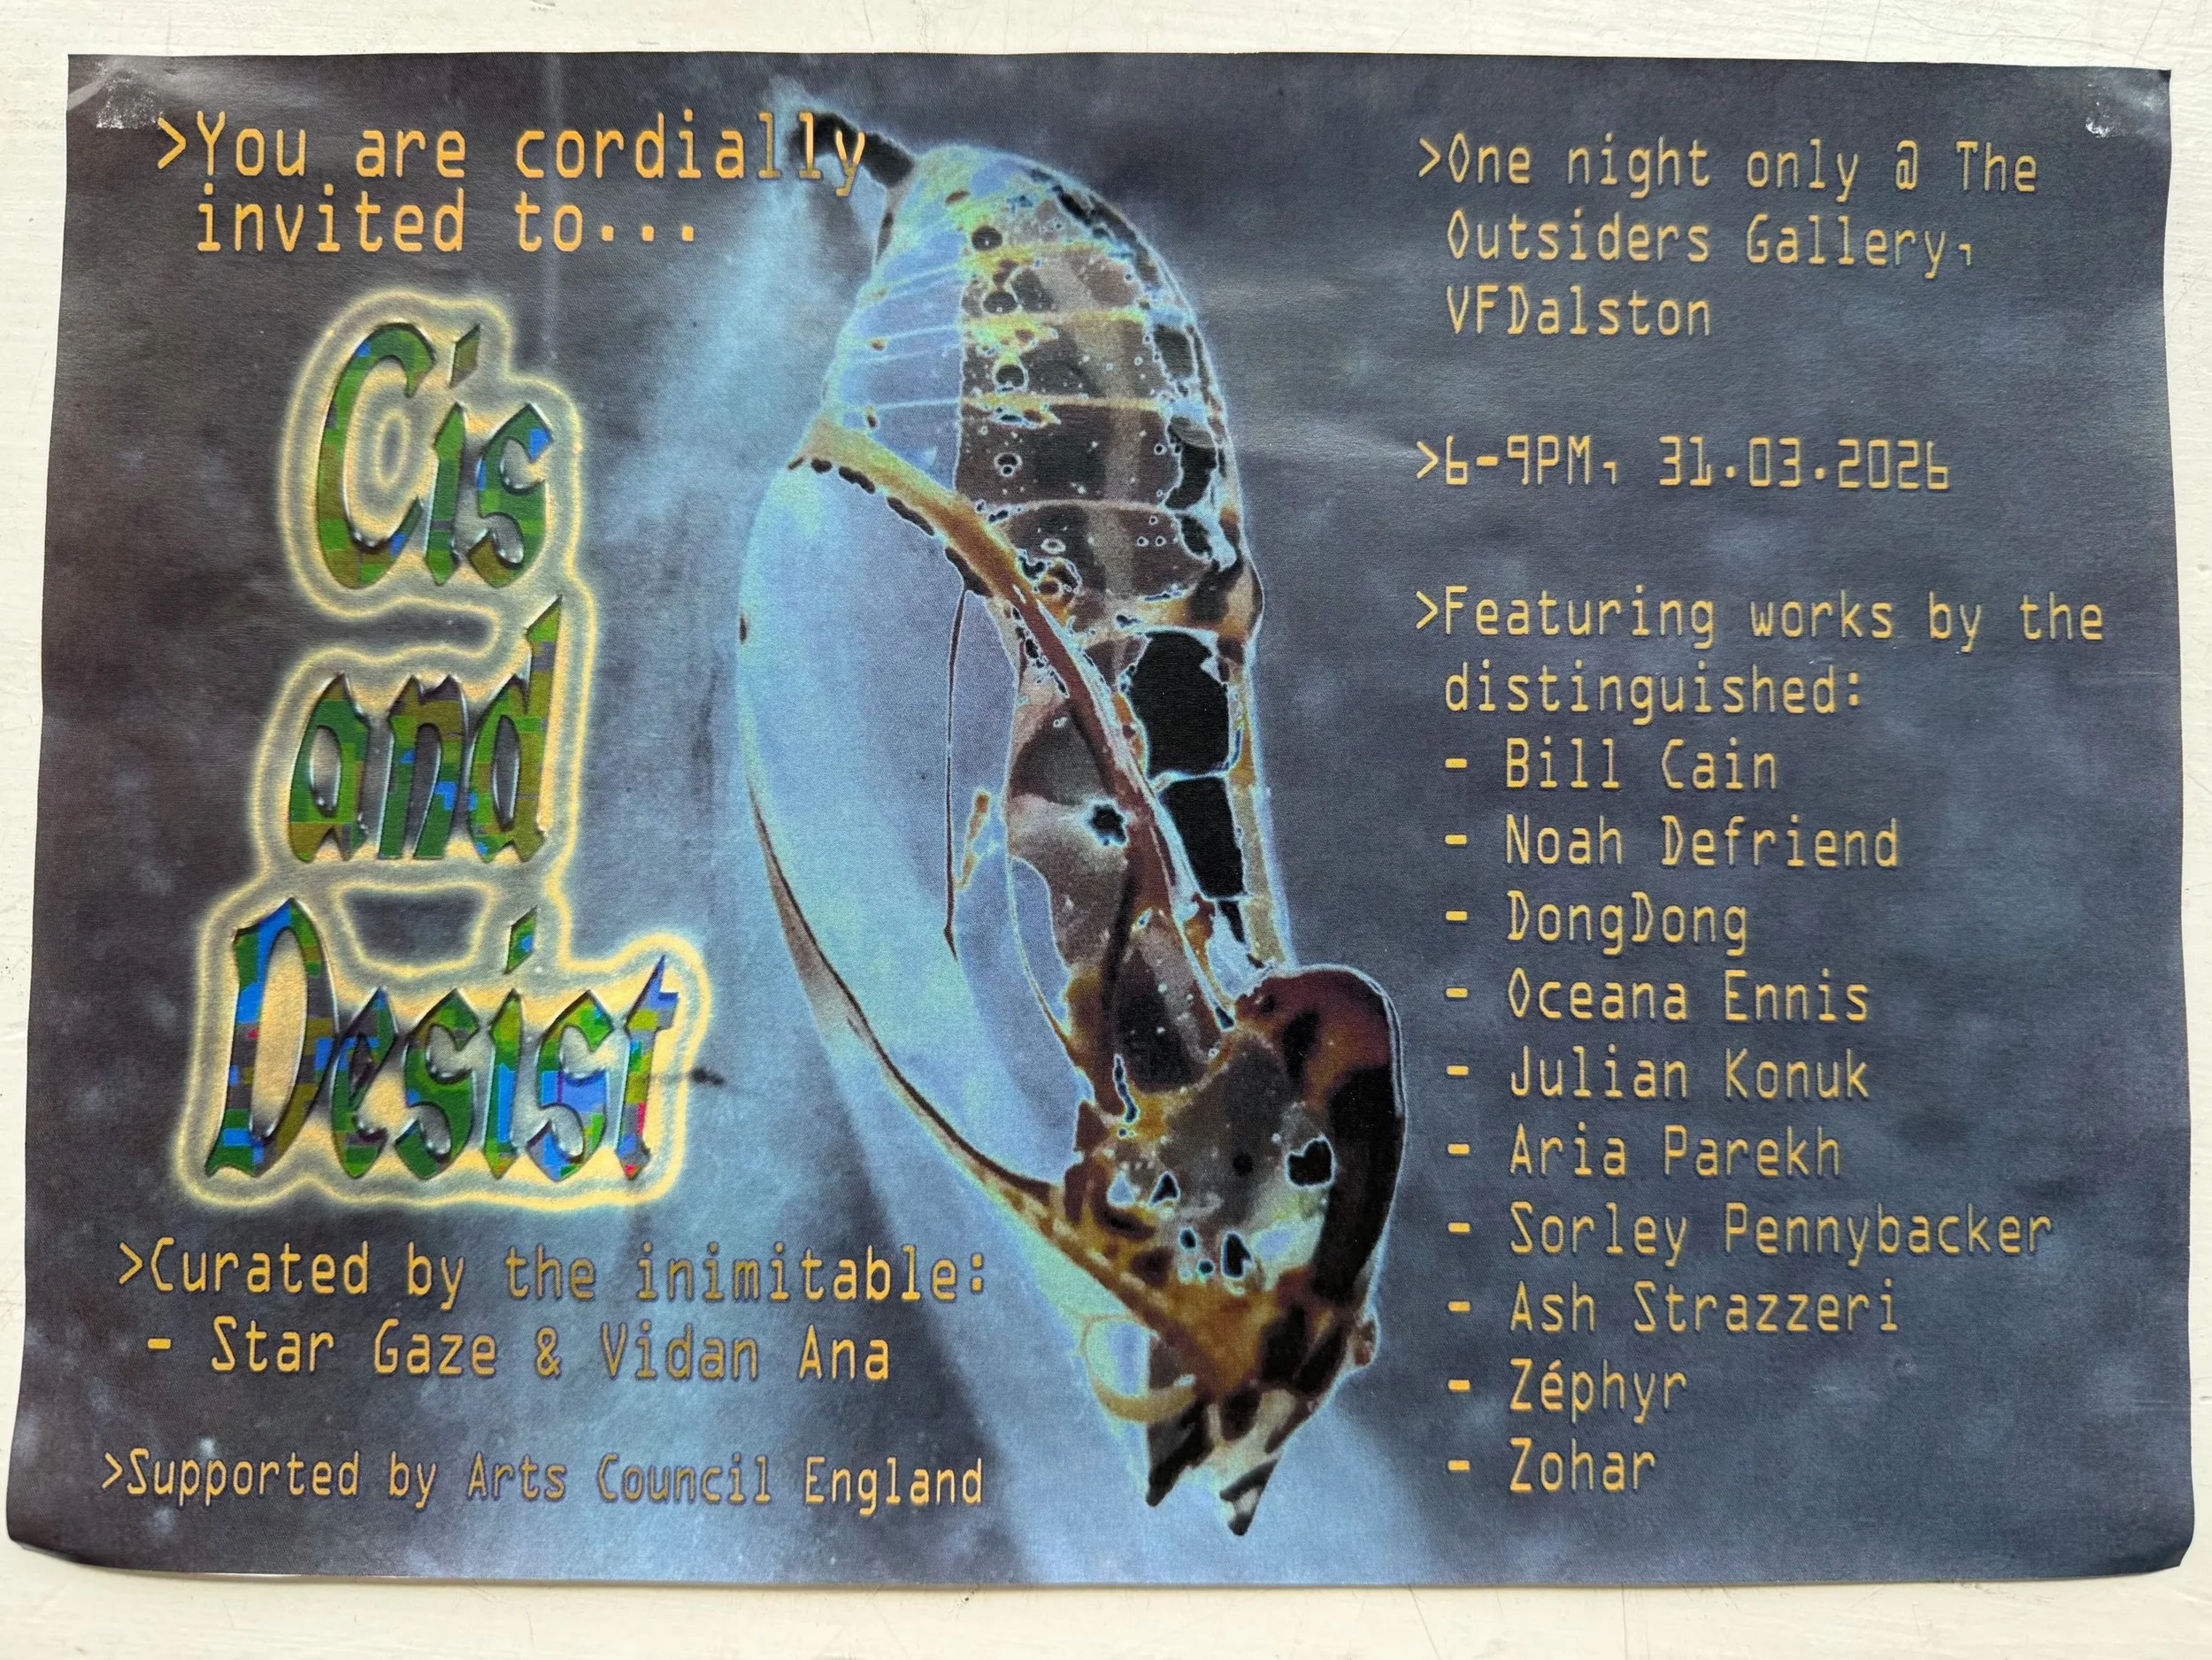 >You are cordially
invited to...
Cis
and
Desist
>Curated by the inimitable:
- Star Gaze & Vidan Ana
>Supported by Arts Council England
>One night only @ The
Outsiders Gallery,
VFDalston
>6-9PM, 31.03.2026
>Featuring works by the
distinguished:
- Bill Cain
- Noah Defriend
- DongDong
- Oceana Ennis
- Julian Konuk
- Aria Parekh
- Sorley Pennybacker
- Ash Strazzeri
- Zéphyr
- Zohar